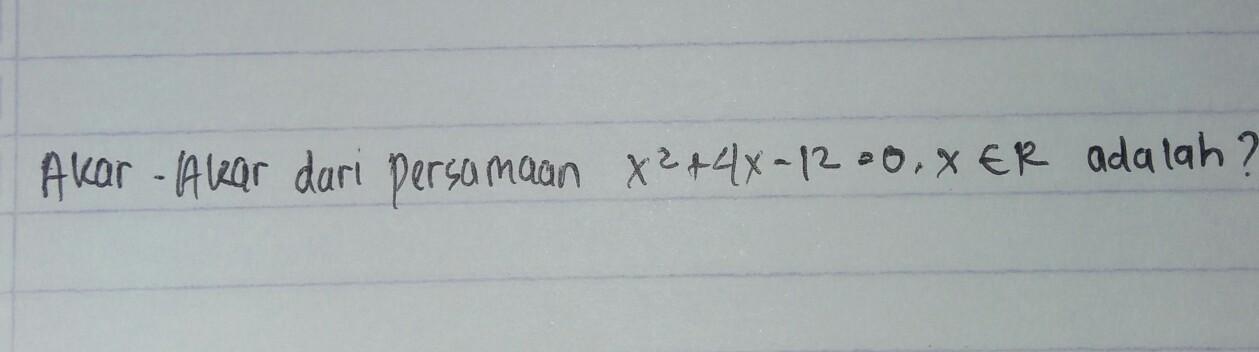 Akar - Akar dari persamaan x²+4x-12=0, x ∈ R adalah?